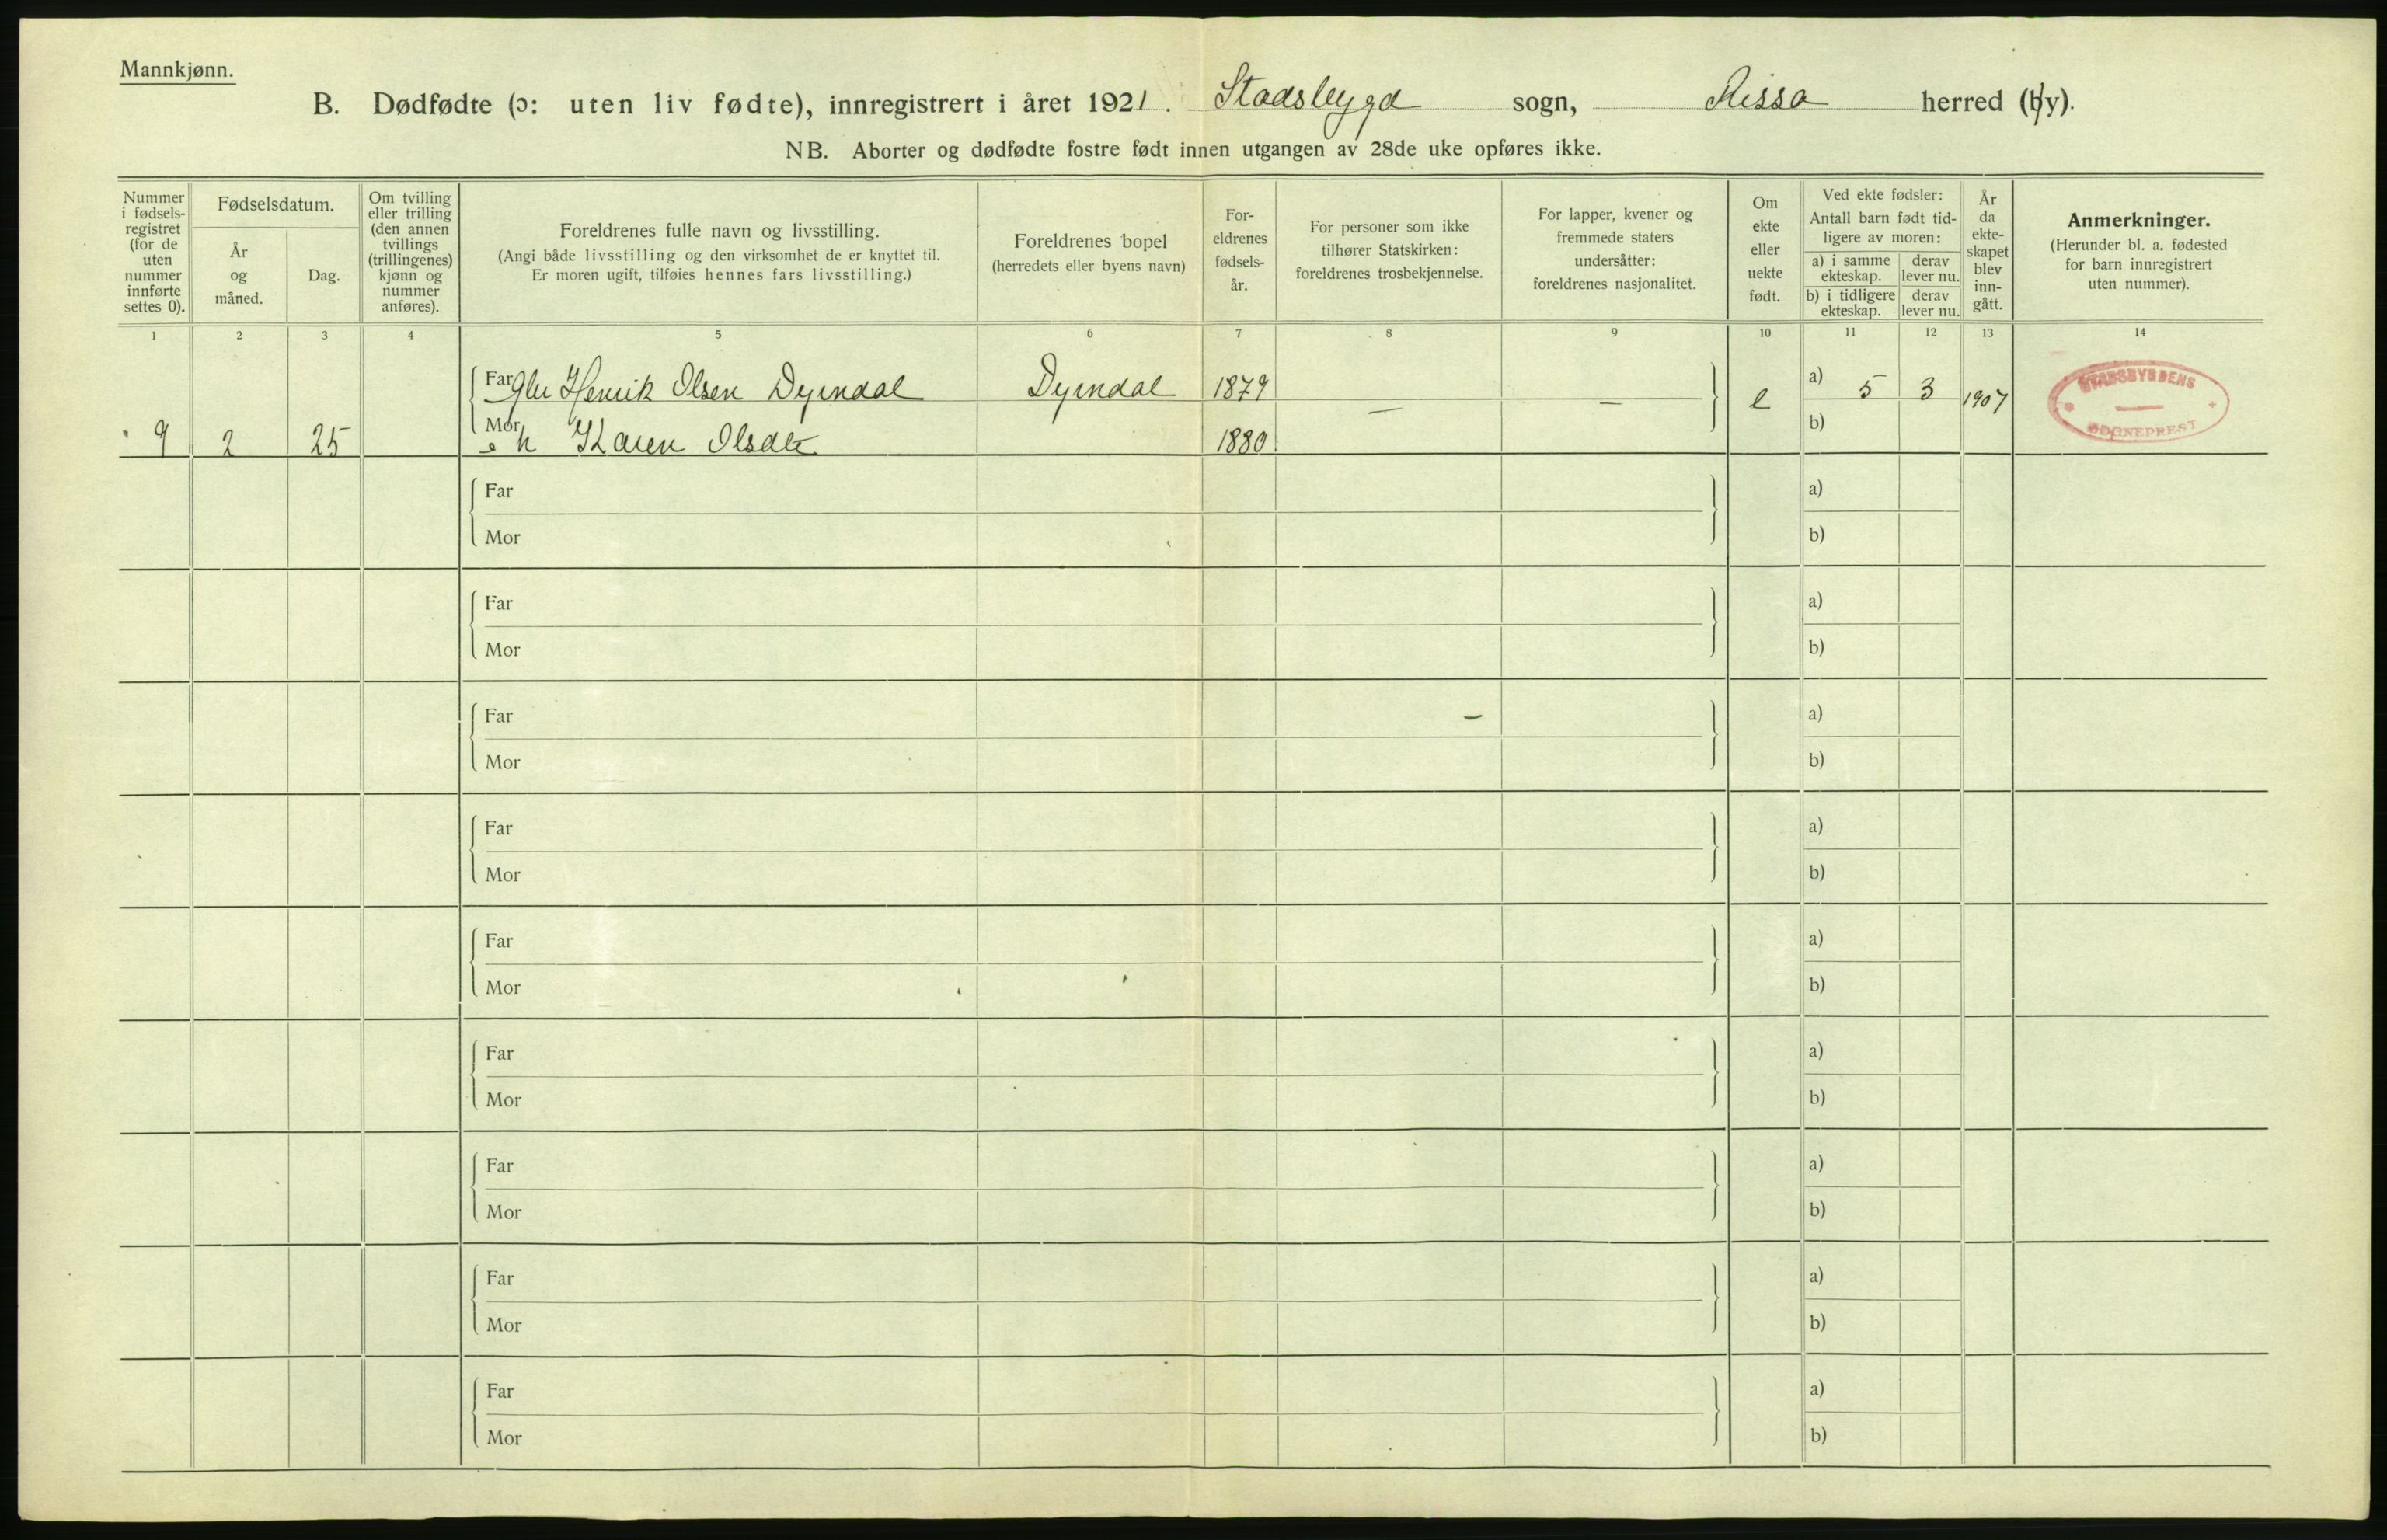 Mannkjønn.
B. Dødfødte (ɔ: uten liv fødte), innregistrert i året 1921. Stadsbygd sogn, Rissa herred (by).
NB. Aborter og dødfødte fostre født innen utgangen av 28de uke opføres ikke.
Nummer i fødsels-registret (for de uten nummer innførte settes 0).
Fødselsdatum.
År og måned.
Dag.
Om tvilling eller trilling (den annen tvillings (trillingenes) kjønn og nummer anføres).
Foreldrenes fulle navn og livsstilling.
(Angi både livsstilling og den virksomhet de er knyttet til.
Er moren ugift, tilføies hennes fars livsstilling.)
Foreldrenes bopel
(herredets eller byens navn)
For-eldrenes fødsels-år.
For personer som ikke tilhører Statskirken: foreldrenes trosbekjennelse.
For lapper, kvener og fremmede staters undersåtter: foreldrenes nasjonalitet.
Om ekte eller uekte født.
Ved ekte fødsler:
Antall barn født tid-ligere av moren:
a) i samme ekteskap.
derav lever nu.
b) i tidligere ekteskap.
derav lever nu.
År da ekte-skapet blev inn-gått.
Anmerkninger.
(Herunder bl. a. fødested for barn innregistrert uten nummer).
1 2 3 4 5 6 7 8 9 10 11 12 13 14
Far Henrik Olsen Dyrndal Dyrndal 1879 — — e a) 5 3 1907
STADSBYGDENS
SOGNEPREST
9 2 25 Mor Karen Olsdt 1880 b)
Far a)
Mor b)
Far a)
Mor b)
Far a)
Mor b)
Far a)
Mor b)
Far a)
Mor b)
Far a)
Mor b)
Far a)
Mor b)
Far a)
Mor b)
Far a)
Mor b)